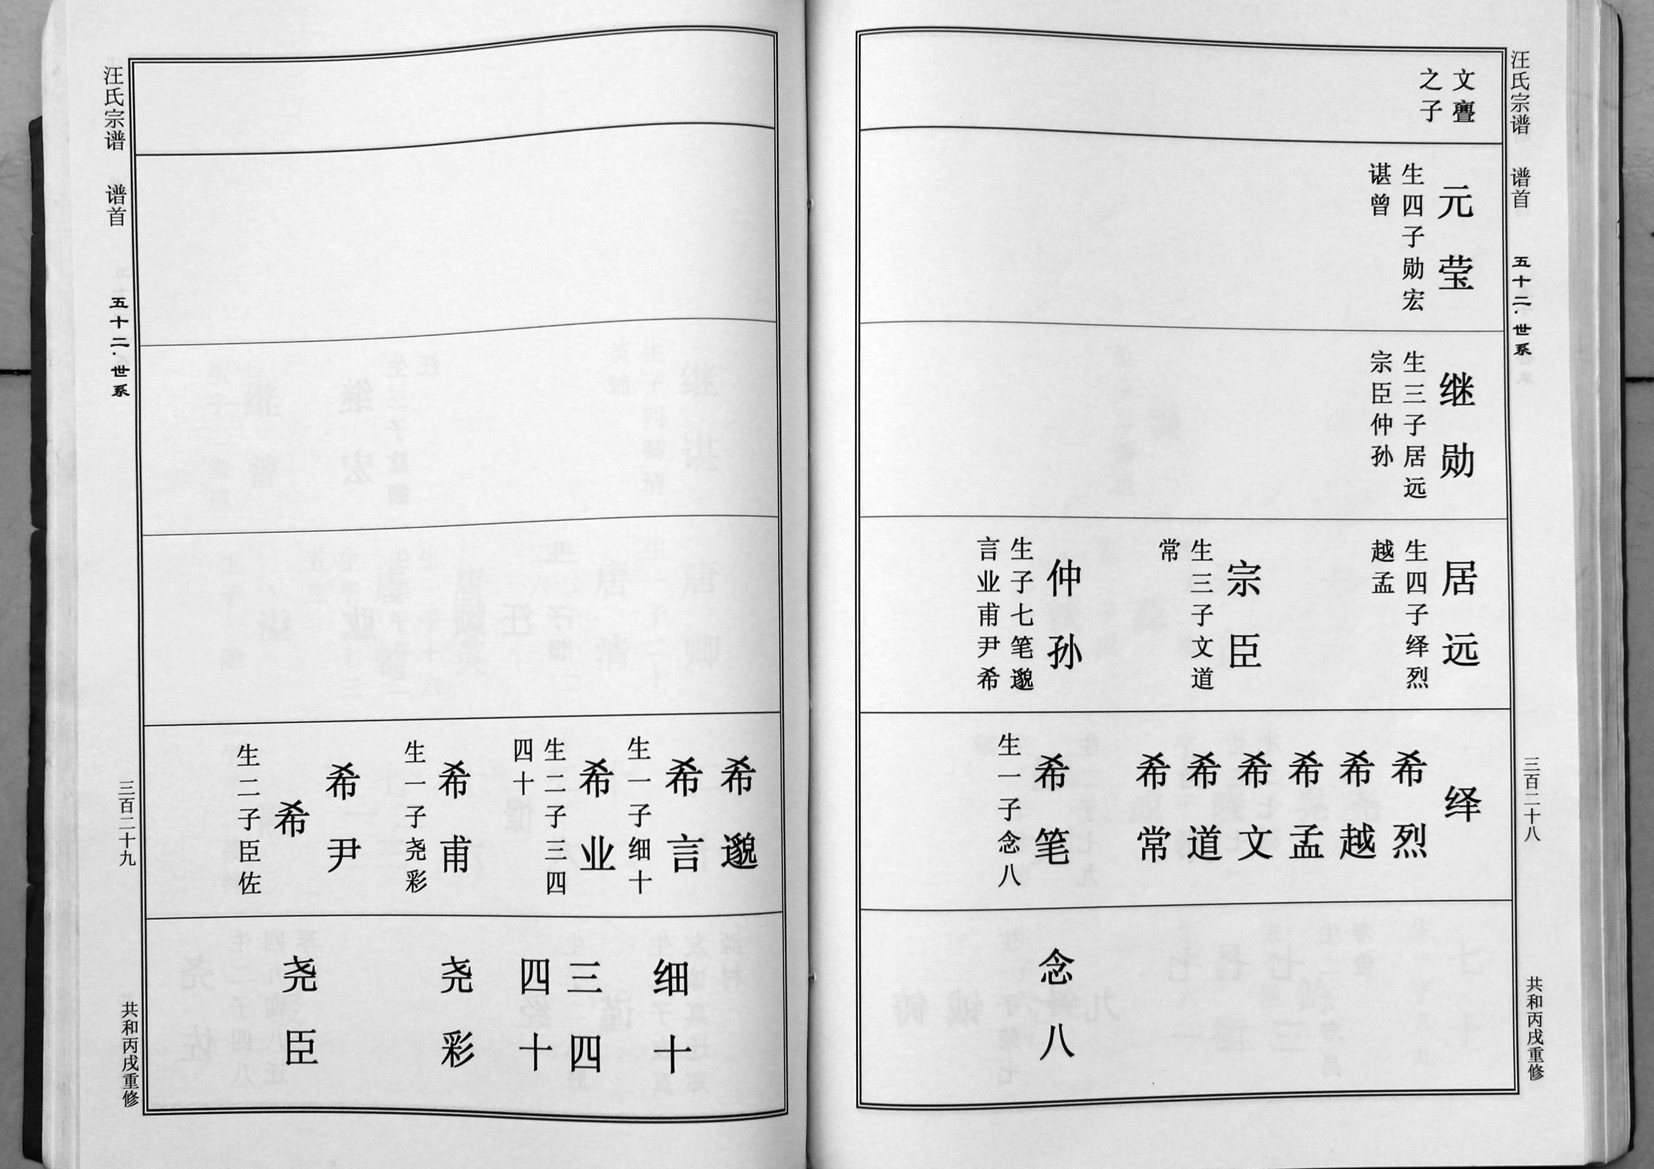 汪氏宗谱
谱首
五十二·世系
三百二十八
共和丙戌重修
文亹
之子
元莹
生四子勋宏
谌曾
继勋
生三子居远
宗臣仲孙
居远
生四子绎烈
越孟
宗臣
生三子文道
常
仲孙
生子七笔邈
言业甫尹希
绎
希烈
希越
希孟
希文
希道
希常
希笔
生一子念八
念八
汪氏宗谱
谱首
五十二·世系
三百二十九
共和丙戌重修
希邈
希言
生一子细十
希业
生二子三四
四十
希甫
生一子尧彩
希尹
希
生二子臣佐
细十
三四
四十
尧彩
尧臣